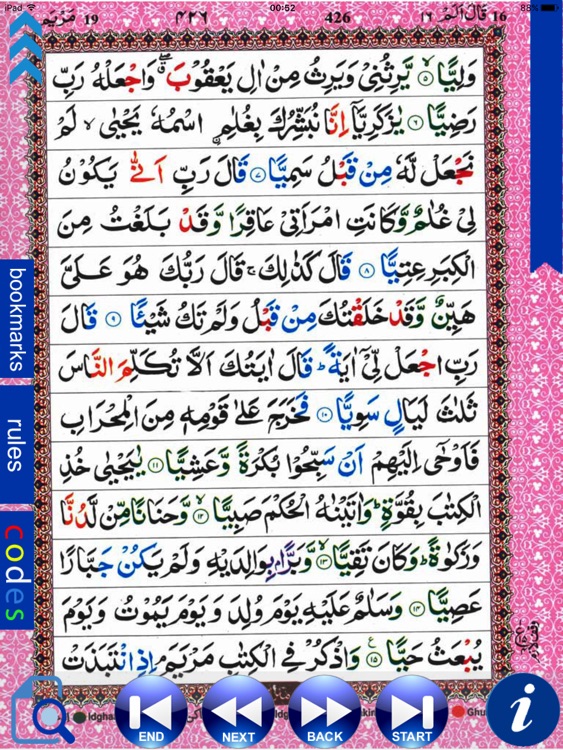 iPad 00:52 88%
مَرْيَم 19 ٤٢٦ 426 قَالَ اَلَمْ ١٦ 16
وَلِيًّا ۙ‏﴿۵﴾ يَّرِثُنِىْ وَيَرِثُ مِنْ اٰلِ يَعْقُوْبَ ۖ وَاجْعَلْهُ رَبِّ
رَضِيًّا ﴿۶﴾ يٰزَكَرِيَّاۤ اِنَّا نُبَشِّرُكَ بِغُلٰمِ اۨسْمُهٗ يَحْيٰى ۙ لَمْ
نَجْعَلْ لَّهٗ مِنْ قَبْلُ سَمِيًّا ﴿۷﴾ قَالَ رَبِّ اَنّٰى يَكُوْنُ
لِىْ غُلٰمٌ وَّكَانَتِ امْرَاَتِىْ عَاقِرًا وَّقَدْ بَلَغْتُ مِنَ
الْكِبَرِ عِتِيًّا ﴿۸﴾ قَالَ كَذٰلِكَ ۚ قَالَ رَبُّكَ هُوَ عَلَىَّ
هَيِّنٌ وَّقَدْ خَلَقْتُكَ مِنْ قَبْلُ وَلَمْ تَكُ شَيْـًٔا ﴿۹﴾ قَالَ
رَبِّ اجْعَلْ لِّىْۤ اٰيَةً ؕ قَالَ اٰيَتُكَ اَلَّا تُكَلِّمَ النَّاسَ
ثَلٰثَ لَيَالٍ سَوِيًّا ﴿۱۰﴾ فَخَرَجَ عَلٰى قَوْمِهٖ مِنَ الْمِحْرَابِ
فَاَوْحٰۤى اِلَيْهِمْ اَنْ سَبِّحُوْا بُكْرَةً وَّعَشِيًّا ﴿۱۱﴾ يٰيَحْيٰى خُذِ
الْكِتٰبَ بِقُوَّةٍ ؕ وَاٰتَيْنٰهُ الْحُكْمَ صَبِيًّا ۙ‏﴿۱۲﴾ وَّحَنَانًا مِّنْ لَّدُنَّا
وَزَكٰوةً ؕ وَكَانَ تَقِيًّا ۙ‏﴿۱۳﴾ وَّبَرًّۢا بِوَالِدَيْهِ وَلَمْ يَكُنْ جَبَّارًا
عَصِيًّا ﴿۱۴﴾ وَسَلٰمٌ عَلَيْهِ يَوْمَ وُلِدَ وَيَوْمَ يَمُوْتُ وَيَوْمَ
يُبْعَثُ حَيًّا ﴿۱۵﴾ ع وَاذْكُرْ فِى الْكِتٰبِ مَرْيَمَ ۘ اِذِ انْتَبَذَتْ
bookmarks
rules
codes
END
NEXT
BACK
START
i